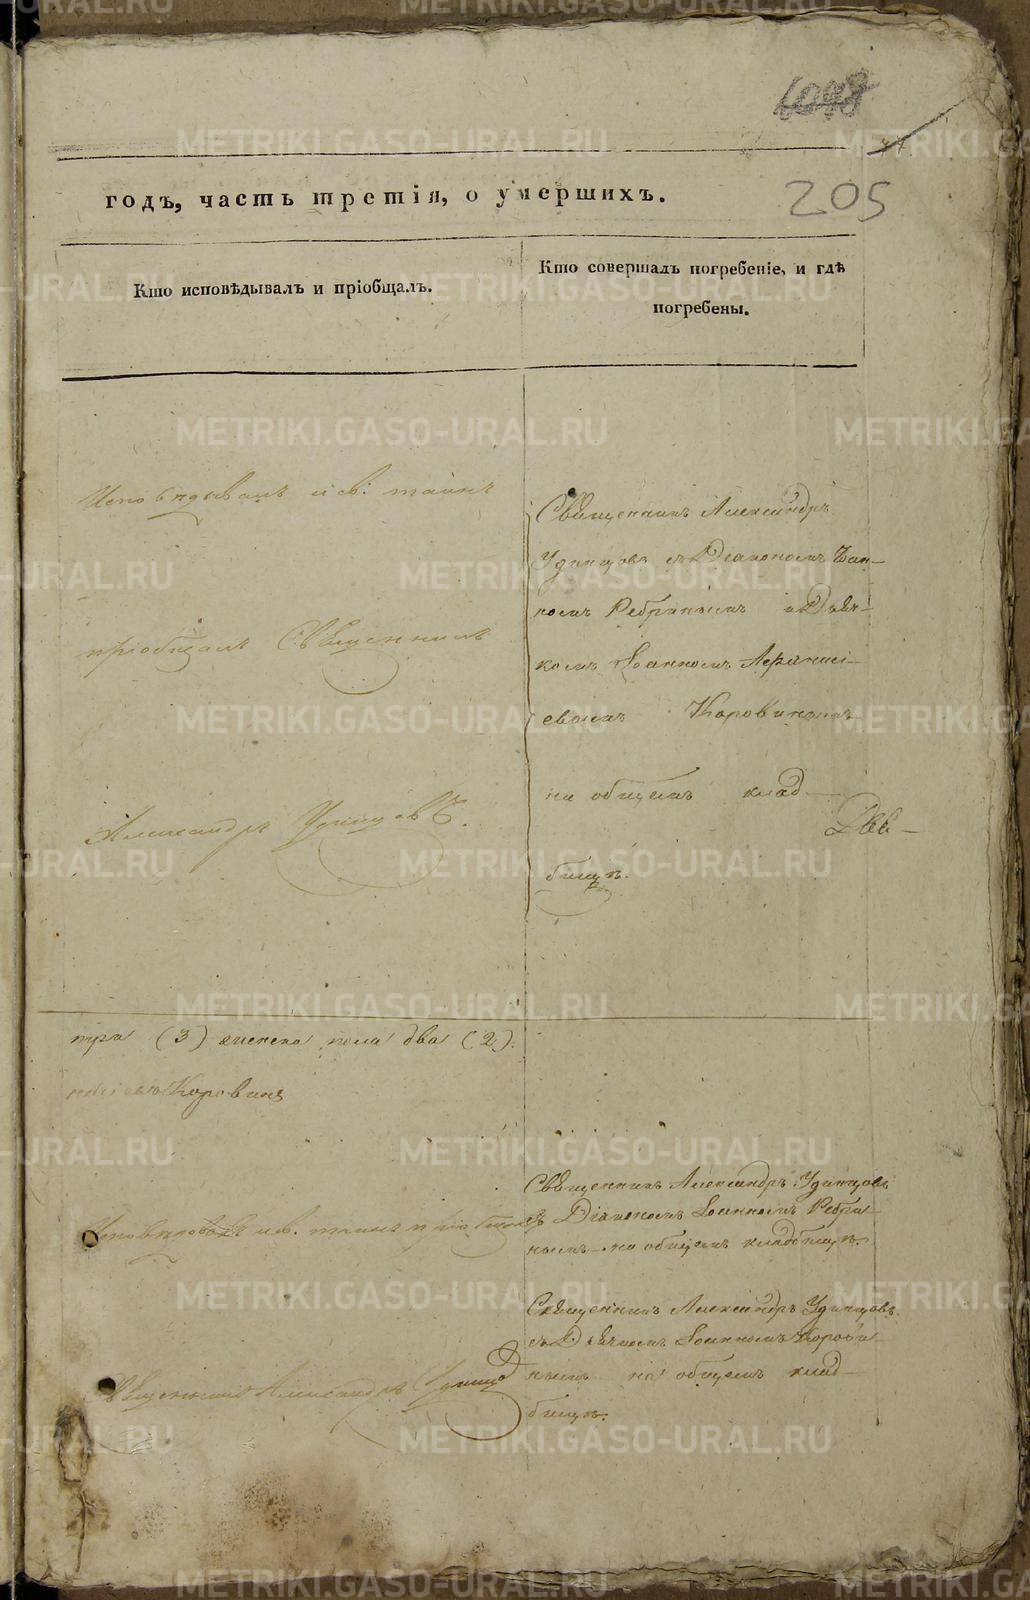 205
годъ, часть третія, о умершихъ.
Кто исповѣдывалъ и пріобщалъ.
Кто совершалъ погребеніе, и гдѣ
погребены.
Исповѣдывалъ и св: таинъ
пріобщалъ Священникъ
Александръ Удинцовъ.
Священникъ Александръ
Удинцовъ съ Діакономъ Іоан-
номъ Ребринымъ и Дьяч-
комъ Іоанномъ Афанасі-
евымъ Коровинымъ
на общемъ клад-
бищѣ.
три (3) женска пола два (2).
Коровинъ
и св. таинъ пріобщалъ
Священникъ Александръ Удинцов
Священникъ Александръ Удинцовъ
съ Діакономъ Іоанномъ Ребри-
нымъ на общемъ кладбищѣ.
Священникъ Александръ Удинцовъ
съ Дьячкомъ Іоанномъ Корови-
нымъ на общемъ клад-
бищѣ.
METRIKI.GASO-URAL.RU